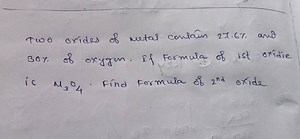 Two oxides of Metal contain 27.6% and
30% of oxygen. if Formula of 1st oxidie
is M₃O₄. Find Formula of 2nd oxide